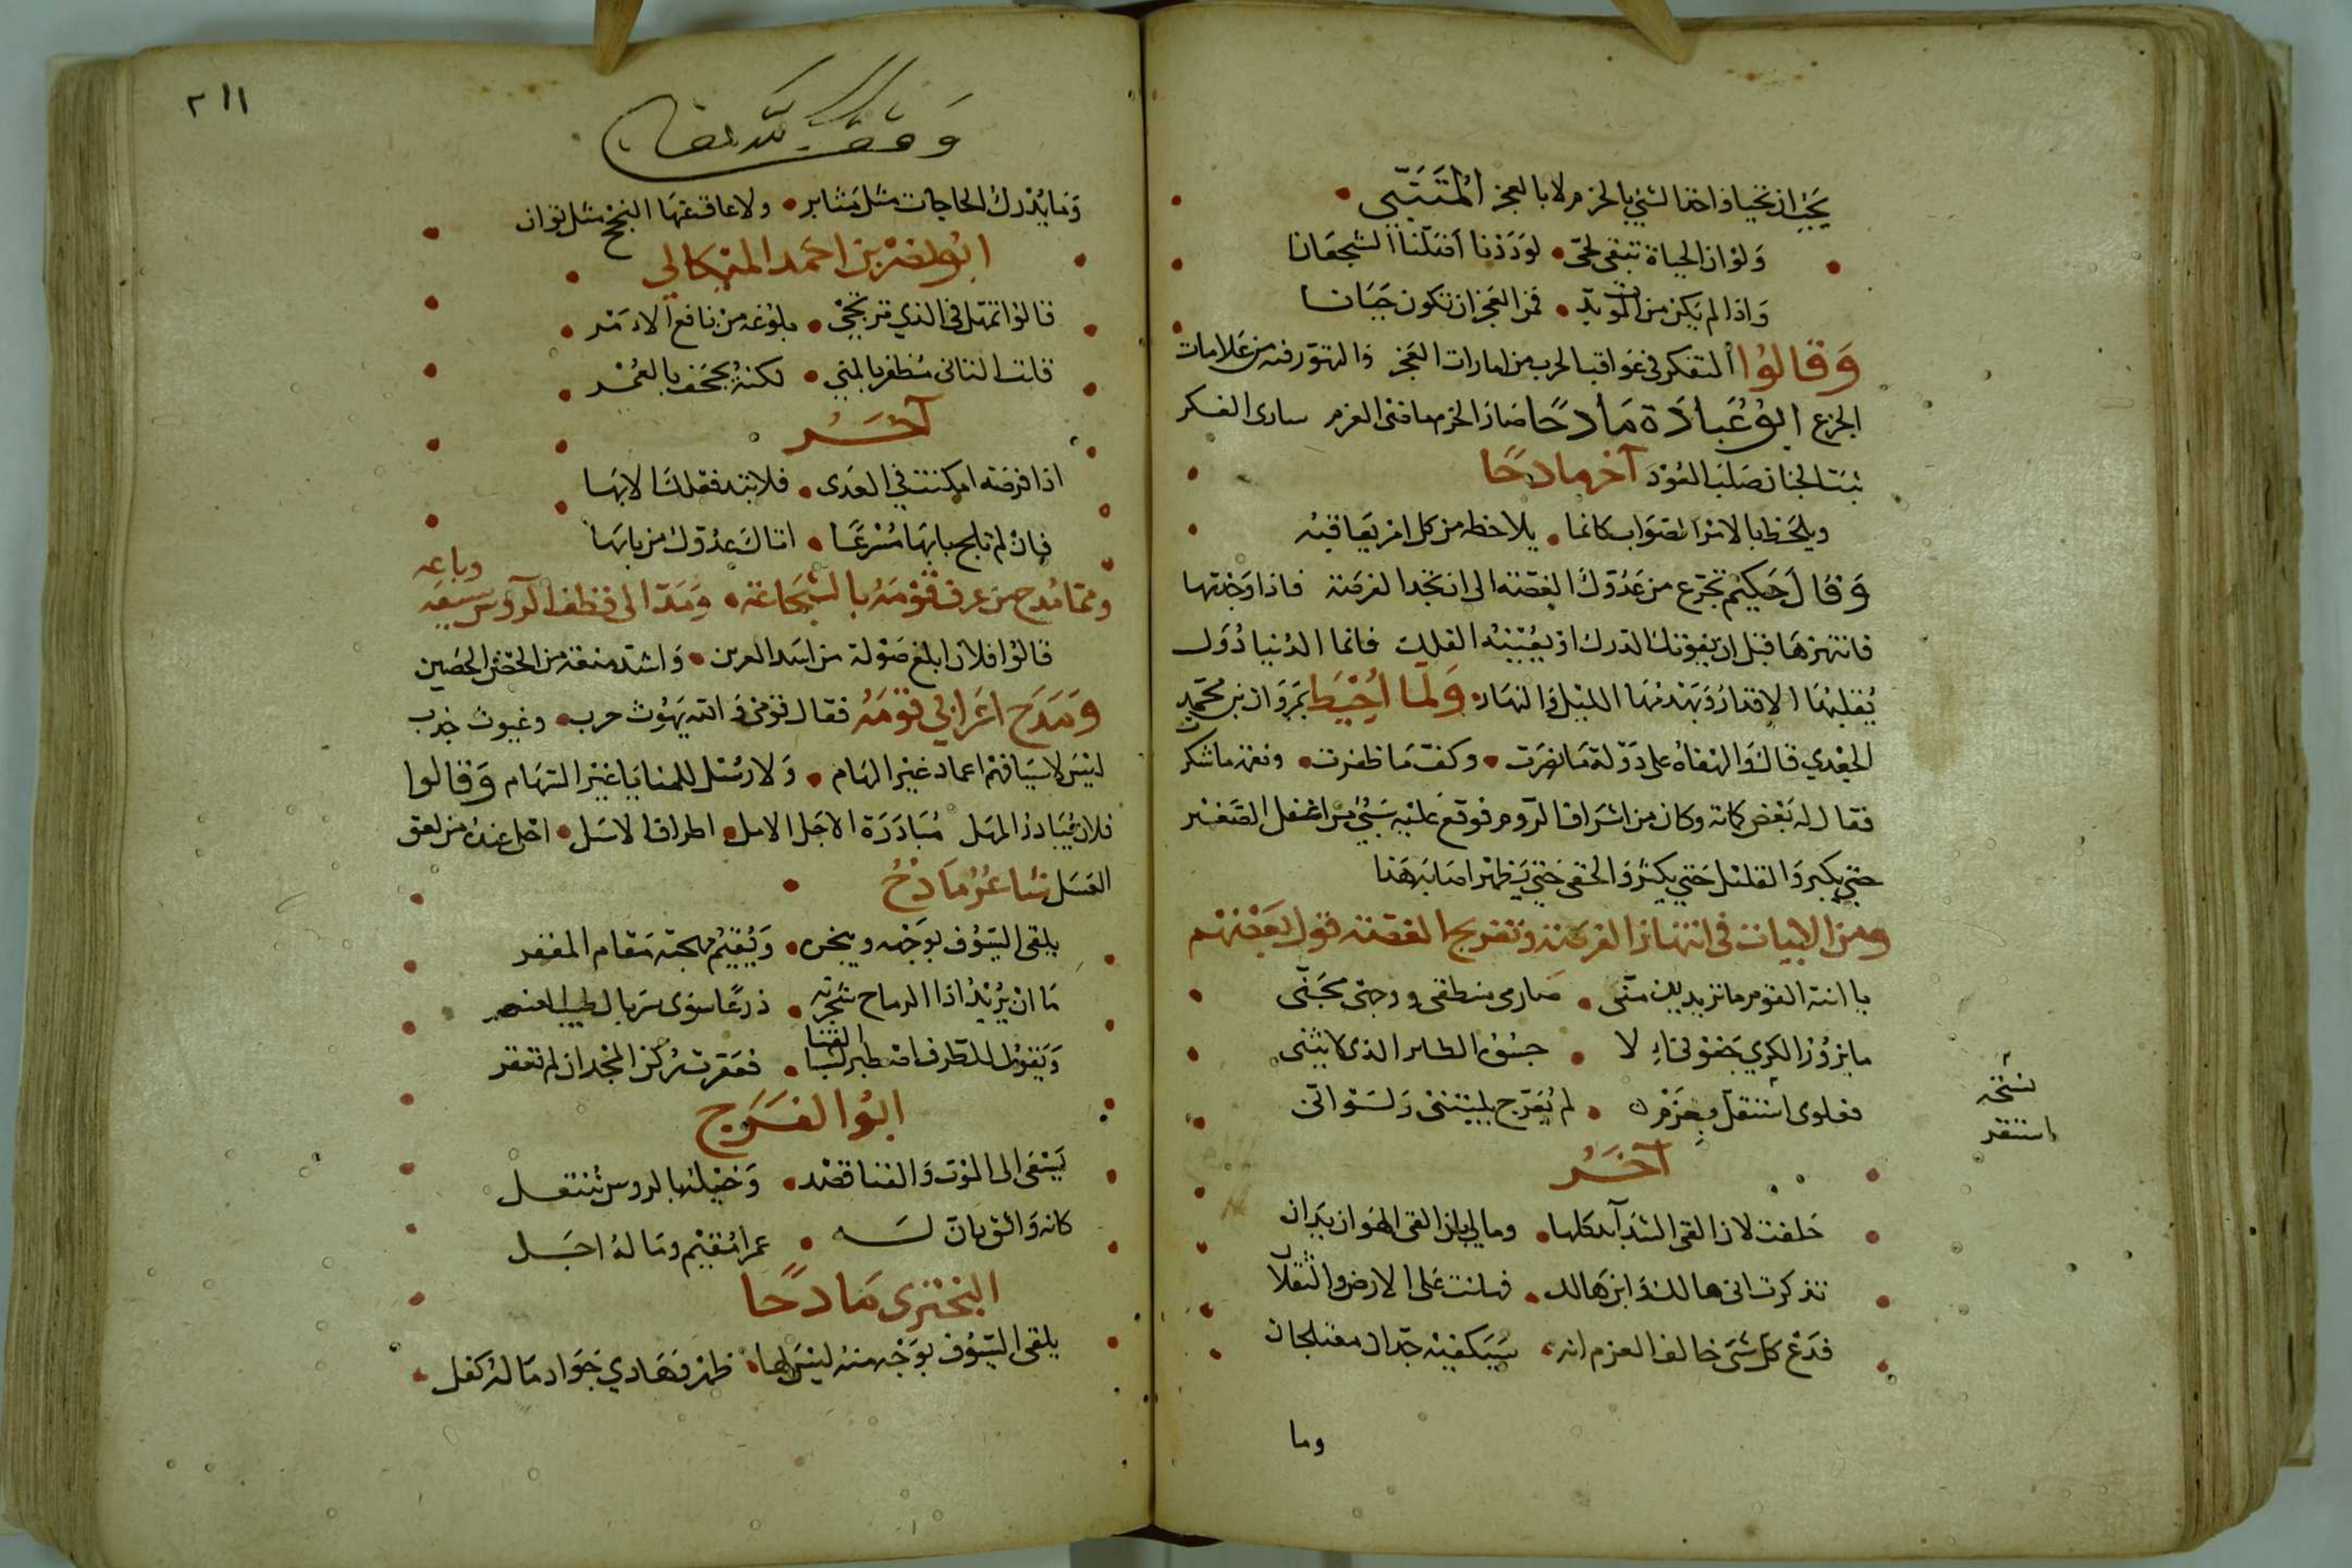 يجب ان تحيا واخذ الشيء بالحزم لا بالعجز المتنبي
وَلوْ ان الحياة تبقى لحيّ لوَدَدْنا اَضَلّنا الشجعَانا
وَاذا لم يَكن من الموت بدّ فمن العجز ان تكون جَبَانا
وَقالوُا التفكر في عَواقب الحرب من امارات العَجز والتهوّر فيه من عَلامات
الجزع ابوُعُبادَة مَادحًا صَارَ الحزم ماضى العزم سارى الفكر
ثبت الجنان صَلب العُوْد آخر مادحًا
ويلحَظ بالامر الصّوَاب كانما يلاحظه من كل امر يعَاقبه
وَقالَ حَكيْم تجرّع من عَدُوّك الغصّة الى ان تجد الفرصَة فاذا وَجدتها
فانتهزهَا قبل ان يفوتك الدرك او يعُيْنه الفلك فانما الدُنيا دُوَل
يُقلبُهَا الاقدارُ وَيَهْدمُهَا الليْل وَالنهار وَلَمّا اُحْيَط بمَروَان بن محمّد
الجعْدي قالَ وَالهفاهُ على دَوْلة مَا نصرَت وكفّ مَا ظفرت ونعمة ما شكرت
فقال له بَعْض كتابه وكان من اشرَاف الرّوم فوقعَ عليْه سَبْيٌ من اغفل الصَّغيْر
حتى يكبر وَالقليْل حَتى يكثر وَالخفى حَتى يَظهر اصَابه هَذا
ومن الابيات فى انتهاز الفرصَة وتفريج الغصّة قول بعْضهُم
يا ابنة القوم ما تريدين منّى صَارمى منطقى ووجهى مجَنّى
ما يزوُر الكرى جَفوُنىَ اِلا حسْوَة الطاير الذى لا يثنى
فعلوى استقلّ بحَزْم لم يُعَرّج بليْتنى وَلسْوَ انّى
نسخة
استقر
آخَرُ
حَلفت لان القى الشدَآئد كلها ومالى بان القى الهَوَان يَدَان
تذكرت انى هالك وَابن هَالك فهانت عَلى الارض والثقلان
فدَعْ كل شئ خالف العزم انه سَيَكفيْه جدّان معتلجان
وما
٢١١
وَقف لله تعالى
وَمَا يُدْرك الحاجات مثل مَثابر ولا عاق عنهَا النجْح مثل توان
ابوُ الفضل بن احمَد الميْكالي
قالوُا تمهّل فى الذي ترتجيْ بلوُغه من نافع الامْر
قلت التانى مُظفر بالمنى لكنهُ يجحف بالعُمْر
آخَرُ
اذا فرصَة امكنت فى العدَى فلا تبد فعْلكَ الا بهَا
فان لم تلج بابهَا مُسْرعًا اتاكَ عدُوّك من بابهَا
وممّا مُدح من عرف قوْمَهُ بالشجَاعة وَمَدّ الى قطف الرّوس سَيفه وباعه
قالوُا فلان ابلغ صَوْلة من اسَد العرين وَاشدّ منعَة من الحصْن الحَصين
وَمَدَح اعْرَابي قوْمَهُ فقال قوْمى وَالله ليُوث حرب وغيوث جَدب
ليْسَ لاسْيَافهمْ اغماد غيْر الهَام وَلا رسُل للمنايَا غيْر السّهَام وَقالوا
فلان يُبَادرُ المهَل مُبَادَرَة الاجَل الامل اطراف الاسَل احْلى عندهُ من لعق
العَسَل شاعرُ مَادحُ
يلقى السّيوُف بوَجْهه وبنحره وَيُقيْمُ مهجتهُ مَقام المغفر
مَا انْ يُرْيْدُ اذا الرماح شجَرنه درْعًا سوَى سرْبال طيب العنصر
وَيَقوُل للطرف اصْطبر لشبا القنا فعَقرت رُكن المجْد ان لم تعقر
ابوُا الفَرَج
يَسْعَى الى الموْت وَالقنا قصْد وَخيْله بالروس تُنتعل
كانه وَاثق بانّ لَه عمرا مُقيْم ومَا لهُ اجَل
البُحْترى مَادحًا
يلقى السّيوُف بوَجْه منهُ ليْسَ لها ظهْر وَهَادي جَوَاد مَا لهُ كفل